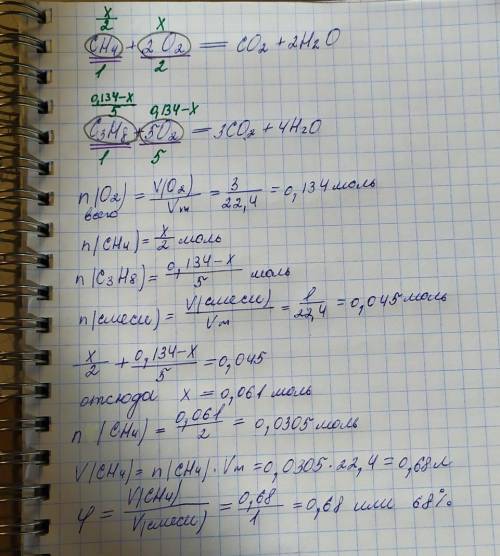 x/2 x
CH4 + 2O2 = CO2 + 2H2O
1 2
0,134-x/5 0,134-x
C3H8 + 5O2 = 3CO2 + 4H2O
1 5
n(O2) = V(O2)/Vm = 3/22,4 = 0,134 моль
всего
n(CH4) = x/2 моль
n(C3H8) = 0,134-x/5 моль
n(смеси) = V(смеси)/Vm = 1/22,4 = 0,045 моль
x/2 + 0,134-x/5 = 0,045
отсюда x = 0,061 моль
n (CH4) = 0,061/2 = 0,0305 моль
V(CH4) = n(CH4) · Vm = 0,0305 · 22,4 = 0,68 л
φ = V(CH4)/V(смеси) = 0,68/1 = 0,68 или 68%